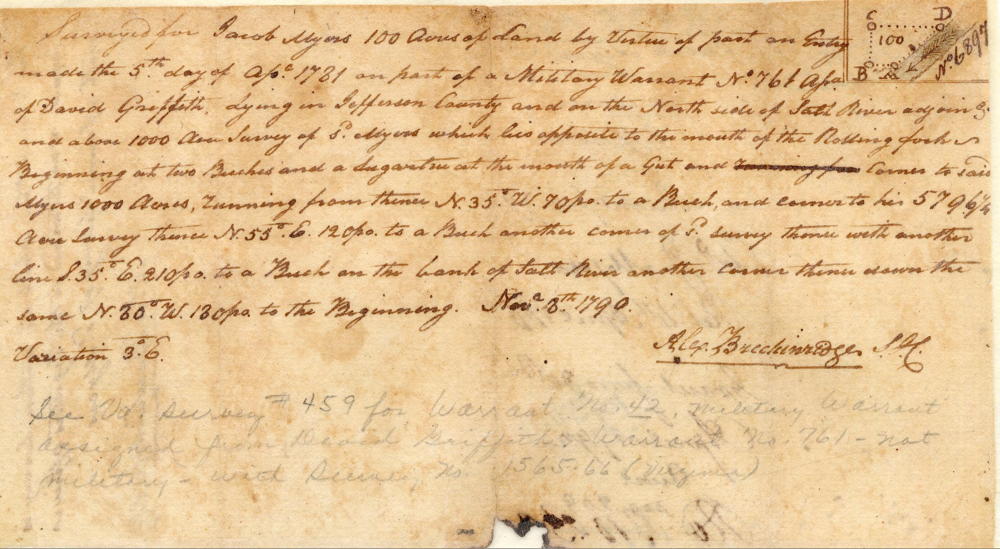 Surveyed for Jacob Myers 100 Acres of Land by Virtue of part an Entry
made the 5.th day of Ap.l 1781 on part of a Military Warrant No. 761 Apd.
of David Griffith. Lying in Jefferson County and on the North side of Salt River adjoin.g
and above 1000 Acre Survey of s.d Myers which lies opposite to the mouth of the Rolling fork
Beginning at two Beeches and a Sugartree at the mouth of a Gut and Corner to said
Myers 1000 Acres, Running from thence N. 35.° W. 70 po. to a Beech, and corner to his 5796 3/4
Acre Survey thence N. 55°. E. 120 po. to a Beech another corner of s.d survey thence with another
line S. 35.° E. 210 po. to a Beech on the bank of Salt River another corner thence down the
same N. 80°. W. 180 po. to the Beginning. Nov.r 8.th 1790.
Alex. Breckinridge S.J.C.
Variation 3.° E.
C D
100
B A
No. 6897
See Va. Survey # 459 for Warrant No. 42, Military Warrant
assigned from David Griffith. Warrant No. 761 - not
military - with Survey No. 1565-66 (Virginia)